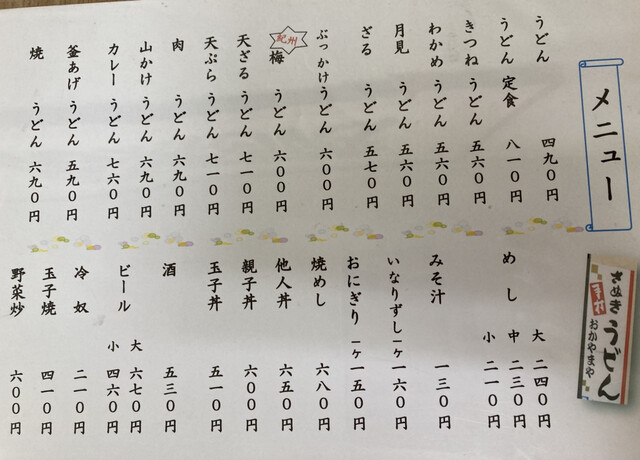 メニュー
うどん 四九〇円
うどん定食 八一〇円
きつねうどん 五六〇円
わかめうどん 五六〇円
月見うどん 五六〇円
ざるうどん 五七〇円
ぶっかけうどん 六〇〇円
紀州梅うどん 六〇〇円
天ざるうどん 七一〇円
天ぷらうどん 七一〇円
肉うどん 六九〇円
山かけうどん 六九〇円
カレーうどん 七六〇円
釜あげうどん 五九〇円
焼うどん 六九〇円
さぬき
手打
うどん
おかやまや
大 二四〇円
めし 中 二三〇円
小 二一〇円
みそ汁 一三〇円
いなりずし一ヶ 一六〇円
おにぎり一ヶ 一五〇円
焼めし 六八〇円
他人丼 六五〇円
親子丼 六〇〇円
玉子丼 五一〇円
酒 五三〇円
大 六七〇円
ビール 小 四六〇円
冷奴 二一〇円
玉子焼 四一〇円
野菜炒 六〇〇円